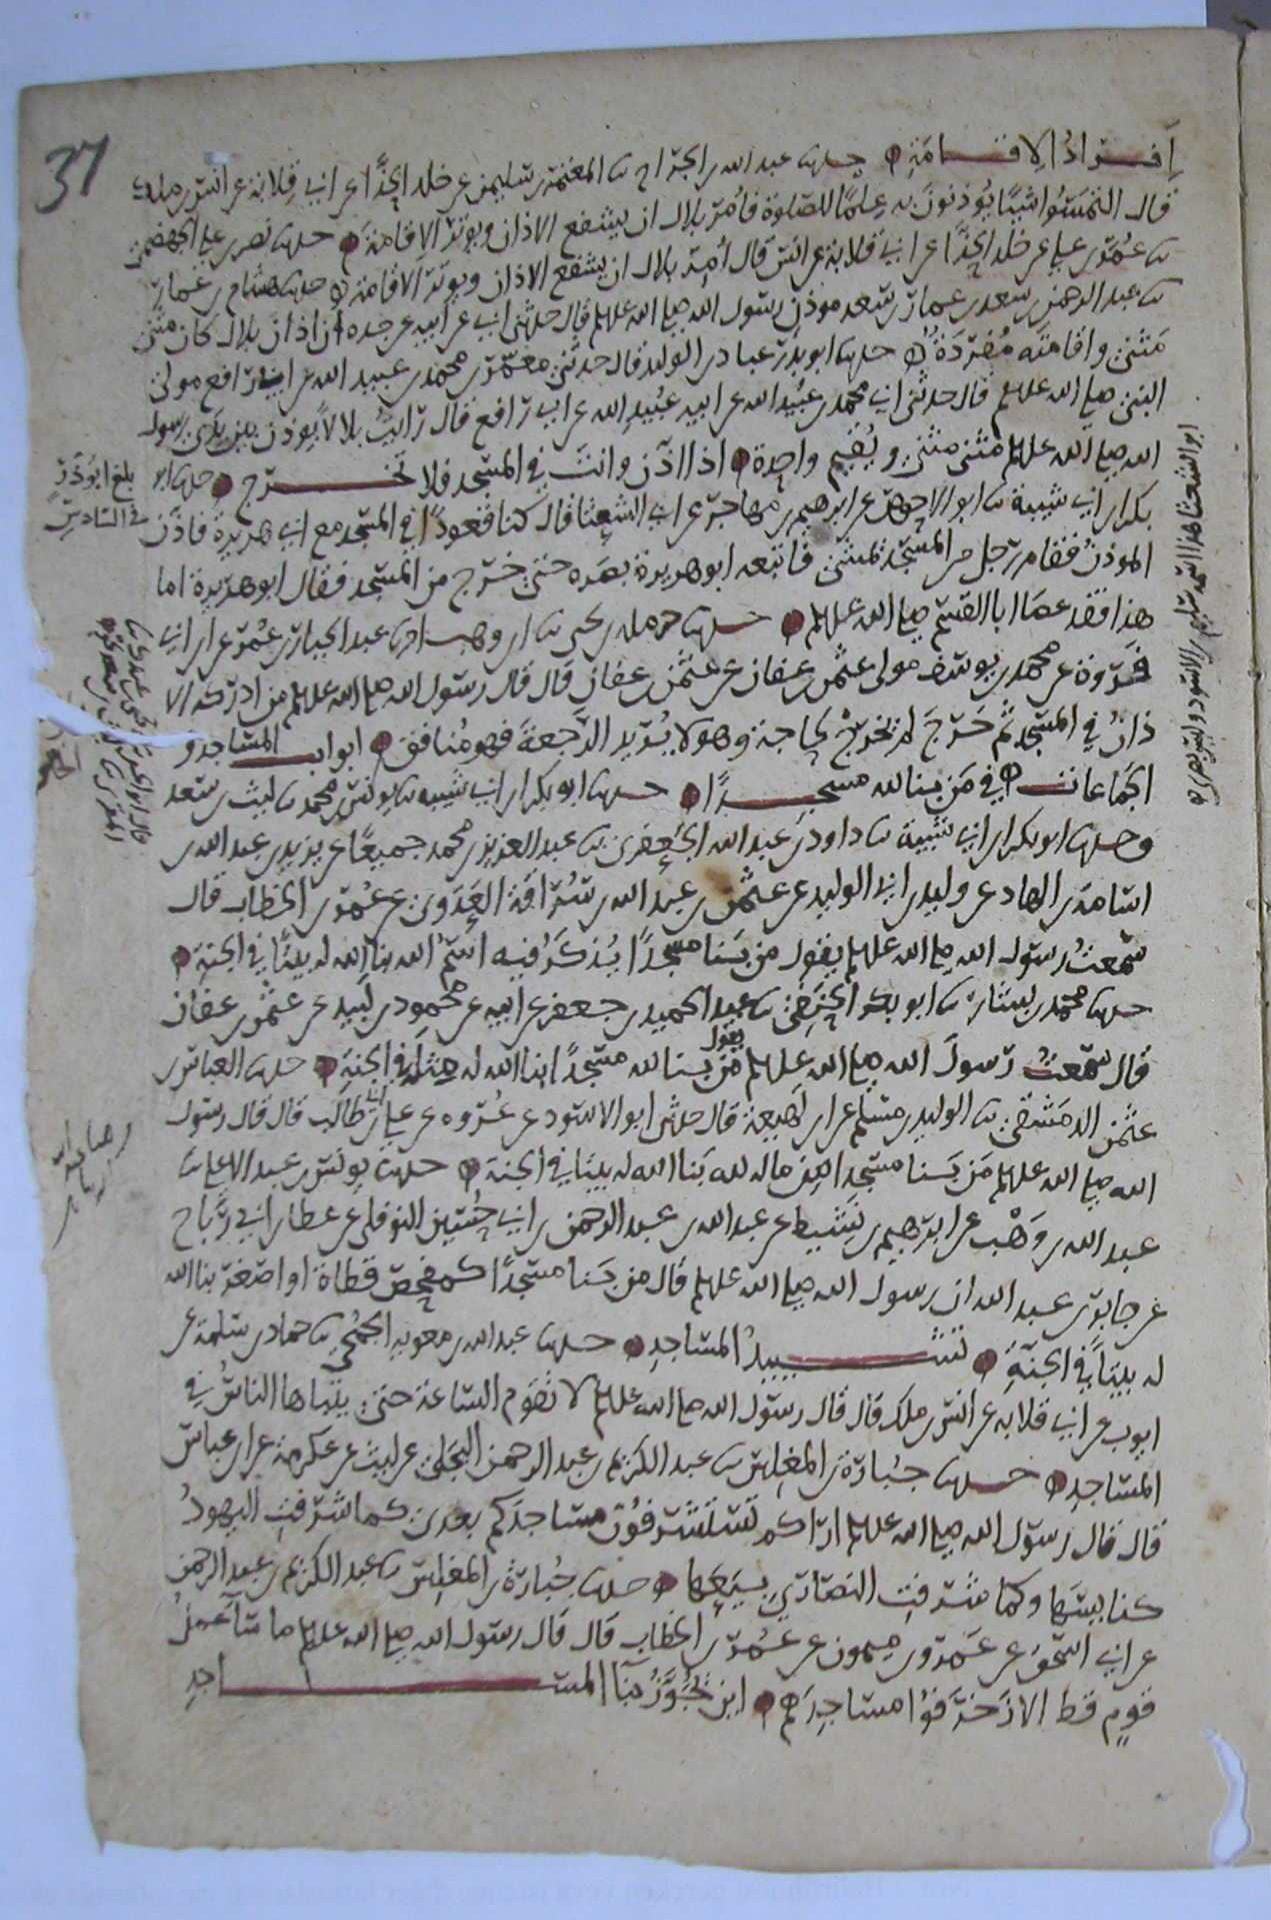 37
إفراد الإقامة حدثنا عبد الله بن الجراح ثنا المعتمر بن سليمن عن خلد الحذا عن ابي قلابة عن انس بن ملك
قال التمسوا شيئا يؤذنون به علما للصلوة فأمر بلال ان يشفع الاذان ويوتر الاقامة حدثنا نصر بن علي الجهضمي
ثنا عمر بن علي عن خلد الحذا عن ابي قلابة عن انس قال أمر بلال ان يشفع الاذان ويوتر الاقامة حدثنا هشام بن عمار
ثنا عبد الرحمن بن سعد بن عمار بن سعد موذن رسول الله صلى الله عليه وسلم قال حدثني ابي عن ابيه عن جده أن اذان بلال كان مثنى
مثنى واقامته مفردة حدثنا ابو بدر عباد بن الوليد قال حدثني معمر بن محمد بن عبيد الله بن ابي رافع مولى
النبي صلى الله عليه وسلم قال حدثني ابي محمد بن عبيد الله عن ابيه عبيد الله عن ابي رافع قال رايت بلالا يوذن بين يدي رسول
الله صلى الله عليه وسلم مثنى مثنى ويقيم واحدة اذا اذن وانت في المسجد فلا تخرج حدثنا ابو
بكر بن ابي شيبة ثنا ابو الاحوص عن ابرهيم بن مهاجر عن ابي الشعثا قال كنا قعودا في المسجد مع ابي هريرة فاذن
الموذن فقام رجل من المسجد يمشي فاتبعه ابو هريرة بصره حتى خرج من المسجد فقال ابو هريرة اما
هذا فقد عصا ابا القسم صلى الله عليه وسلم حدثنا حرملة بن يحيى ثنا ابن وهب انا عبد الجبار بن عمر عن ابن ابي
فروة عن محمد بن يوسف مولى عثمن بن عفان عن عثمن بن عفان قال قال رسول الله صلى الله عليه وسلم من ادركه الا
ذان في المسجد ثم خرج لم يخرج لحاجة وهو لا يريد الرجعة فهو منافق ابواب المساجد و
الجماعات في من بنا لله مسجدا حدثنا ابو بكر بن ابي شيبه ثنا يونس بن محمد ثنا ليث بن سعد
وحدثنا ابو بكر بن ابي شيبة ثنا داود بن عبد الله الجعفري ثنا عبد العزيز بن محمد جميعا عن يزيد بن عبد الله بن
اسامة بن الهاد عن وليد بن ابي الوليد عن عثمن بن عبد الله بن سراقة العدوي عن عمر بن الخطاب قال
سمعت رسول الله صلى الله عليه وسلم يقول من بنا مسجدا يذكر فيه اسم الله بنا الله له بيتا في الجنة
حدثنا محمد بن بشار ثنا ابو بكر الحنفي ثنا عبد الحميد بن جعفر عن ابيه عن محمود بن لبيد عن عثمن بن عفان
قال سمعت رسول الله صلى الله عليه وسلم يقول من بنا لله مسجدا بنا الله له مثله في الجنة حدثنا العباس بن
عثمن الدمشقي ثنا الوليد بن مسلم عن ابن لهيعة قال حدثني ابو الاسود عن عروه عن علي بن ابي طالب قال قال رسول
الله صلى الله عليه وسلم من بنا مسجدا من ماله لله بنا الله له بيتا في الجنة حدثنا يونس بن عبد الاعلى ثنا
عبد الله بن وهب عن ابرهيم بن نشيط عن عبد الله بن عبد الرحمن بن ابي حسين النوفلي عن عطا بن ابي رباح
عن جابر بن عبد الله ان رسول الله صلى الله عليه وسلم قال من بنا مسجدا كمفحص قطاة او اصغر بنا الله
له بيتا في الجنة تشييد المساجد حدثنا عبد الله بن معويه الجمحي ثنا حماد بن سلمة عن
ايوب عن ابي قلابه عن انس بن ملك قال قال رسول الله صلى الله عليه وسلم لا تقوم الساعة حتى يتباها الناس في
المساجد حدثنا جبارة بن المغلس ثنا عبد الكريم بن عبد الرحمن البجلي عن ليث عن عكرمة عن ابن عباس
قال قال رسول الله صلى الله عليه وسلم اراكم ستشرفون مساجدكم بعدي كما شرفت اليهود
كنايسها وكما شرفت النصارى بيعها حدثنا جبارة بن المغلس ثنا عبد الكريم بن عبد الرحمن
عن ابي اسحق عن عمرو بن ميمون عن عمر بن الخطاب قال قال رسول الله صلى الله عليه وسلم ما سآ عمل
قوم قط الا زخرفوا مساجدهم اين تجوز بنآ المساجد
بلغ ابو ذر
في السادس
ابو الشعثا هذا اسمه سليم بن الاسود